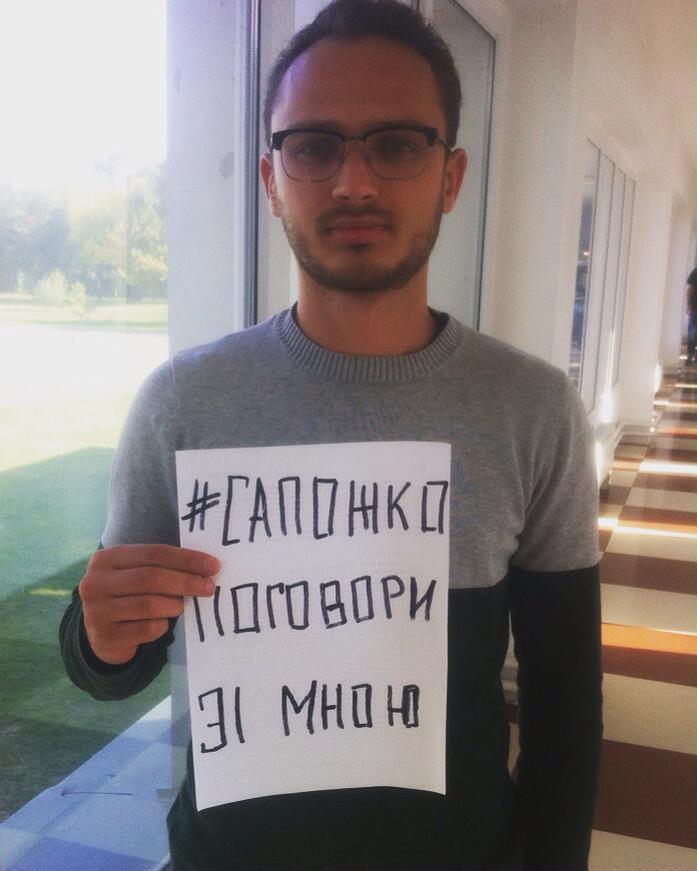 #САПОЖКО
ПОГОВОРИ
ЗІ МНОЮ